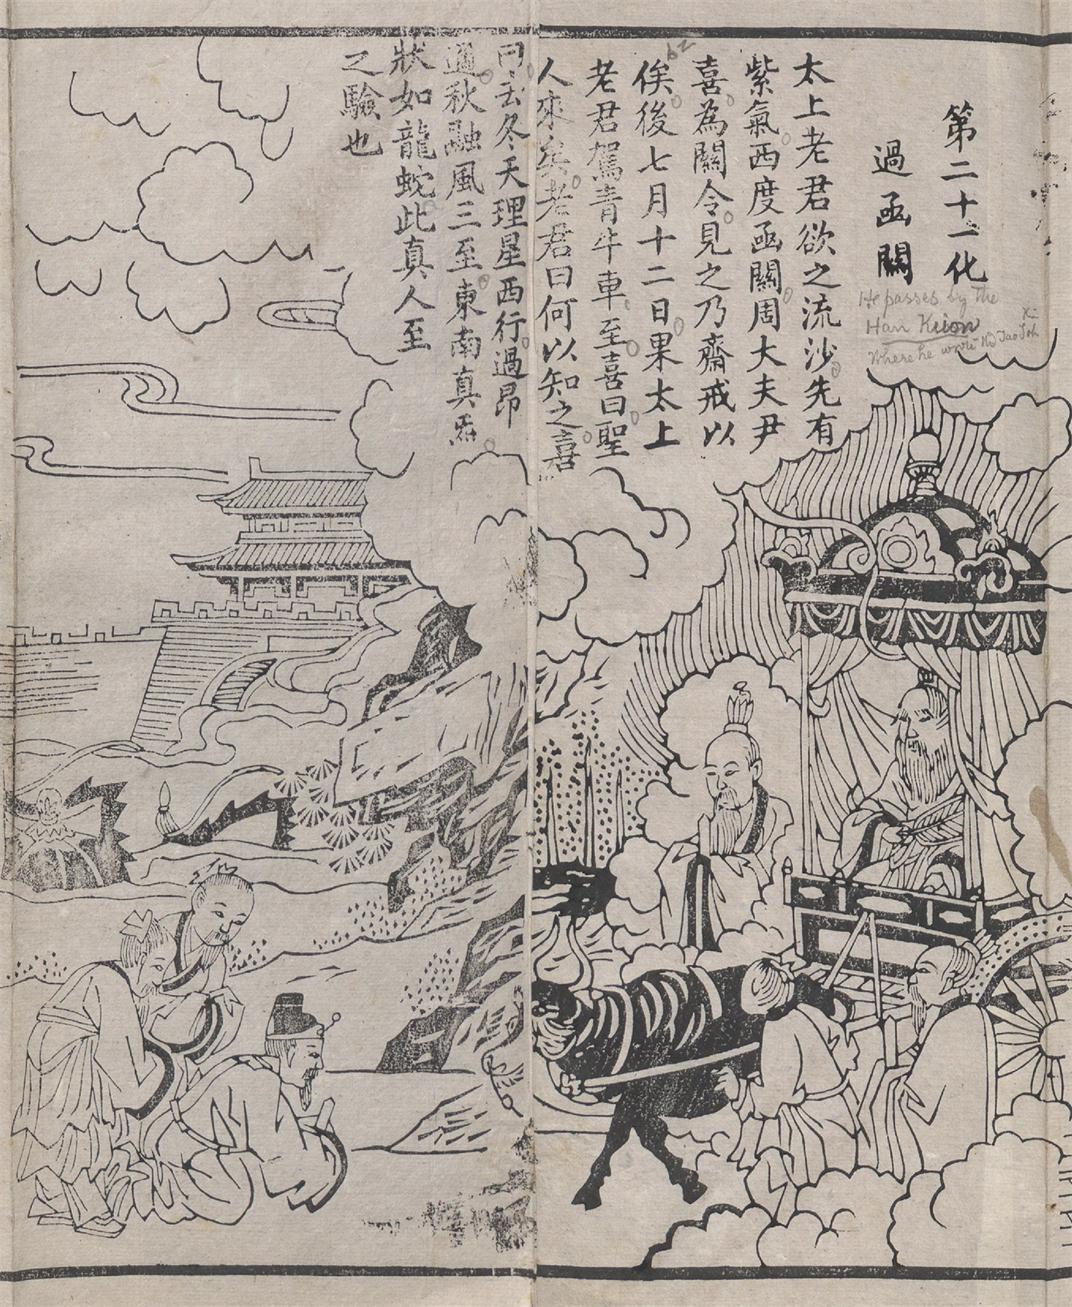 第二十一化
過函關
He passes by the
Han Kuon
Where he wrote the Tao
太上老君欲之流沙先有
紫氣西度函關周大夫尹
喜為關令見之乃齋戒以
俟後七月十二日果太上
老君駕青牛車至喜曰聖
人來矣老君曰何以知之喜
曰去冬天理星西行過昂
過秋融風三至東南真炁
狀如龍蛇此真人至
之驗也
62